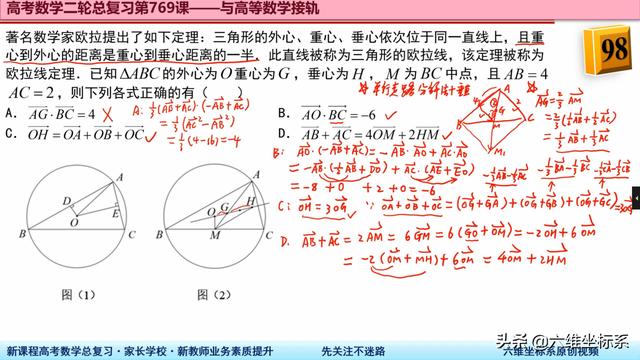 高考数学二轮总复习第769课——与高等数学接轨
98
著名数学家欧拉提出了如下定理：三角形的外心、重心、垂心依次位于同一直线上，且重
心到外心的距离是重心到垂心距离的一半．此直线被称为三角形的欧拉线，该定理被称为
欧拉线定理．已知△ABC的外心为O重心为G，垂心为H，M为BC中点，且AB=4
AC=2，则下列各式正确的有（ ）
A．AG·BC=4 ×
A: 1/3(AB+AC)·(-AB+AC)
=1/3(AC²-AB²)
=1/3(4-16)=-4
B．AO·BC=-6 ✓
C．OH=OA+OB+OC ✓
D．AB+AC=4OM+2HM ✓
AG=2/3AM
=2/3(1/2AB+1/2AC)
=1/3AB+1/3AC
B: AO·(-AB+AC)=-AB·AO+AC·AO
=-AB·(-1/2AB+DO)+AC·(AE+EO)
=-8+0 +2+0=-6
C: OH=3OG ∵ OA+OB+OC=(OG+GA)+(OG+GB)+(OG+GC)=3OG
D. AB+AC=2AM=6GM=6(GO+OM)=-2OH+6OM
=-2(OM+MH)+6OM=4OM+2HM
A
D
E
O
B
C
A
G
H
O
B
M
C
图（1）
图（2）
新课程高考数学总复习·家长学校·新教师业务素质提升
先关注不迷路
六维坐标系原创视频
头条@六维坐标系